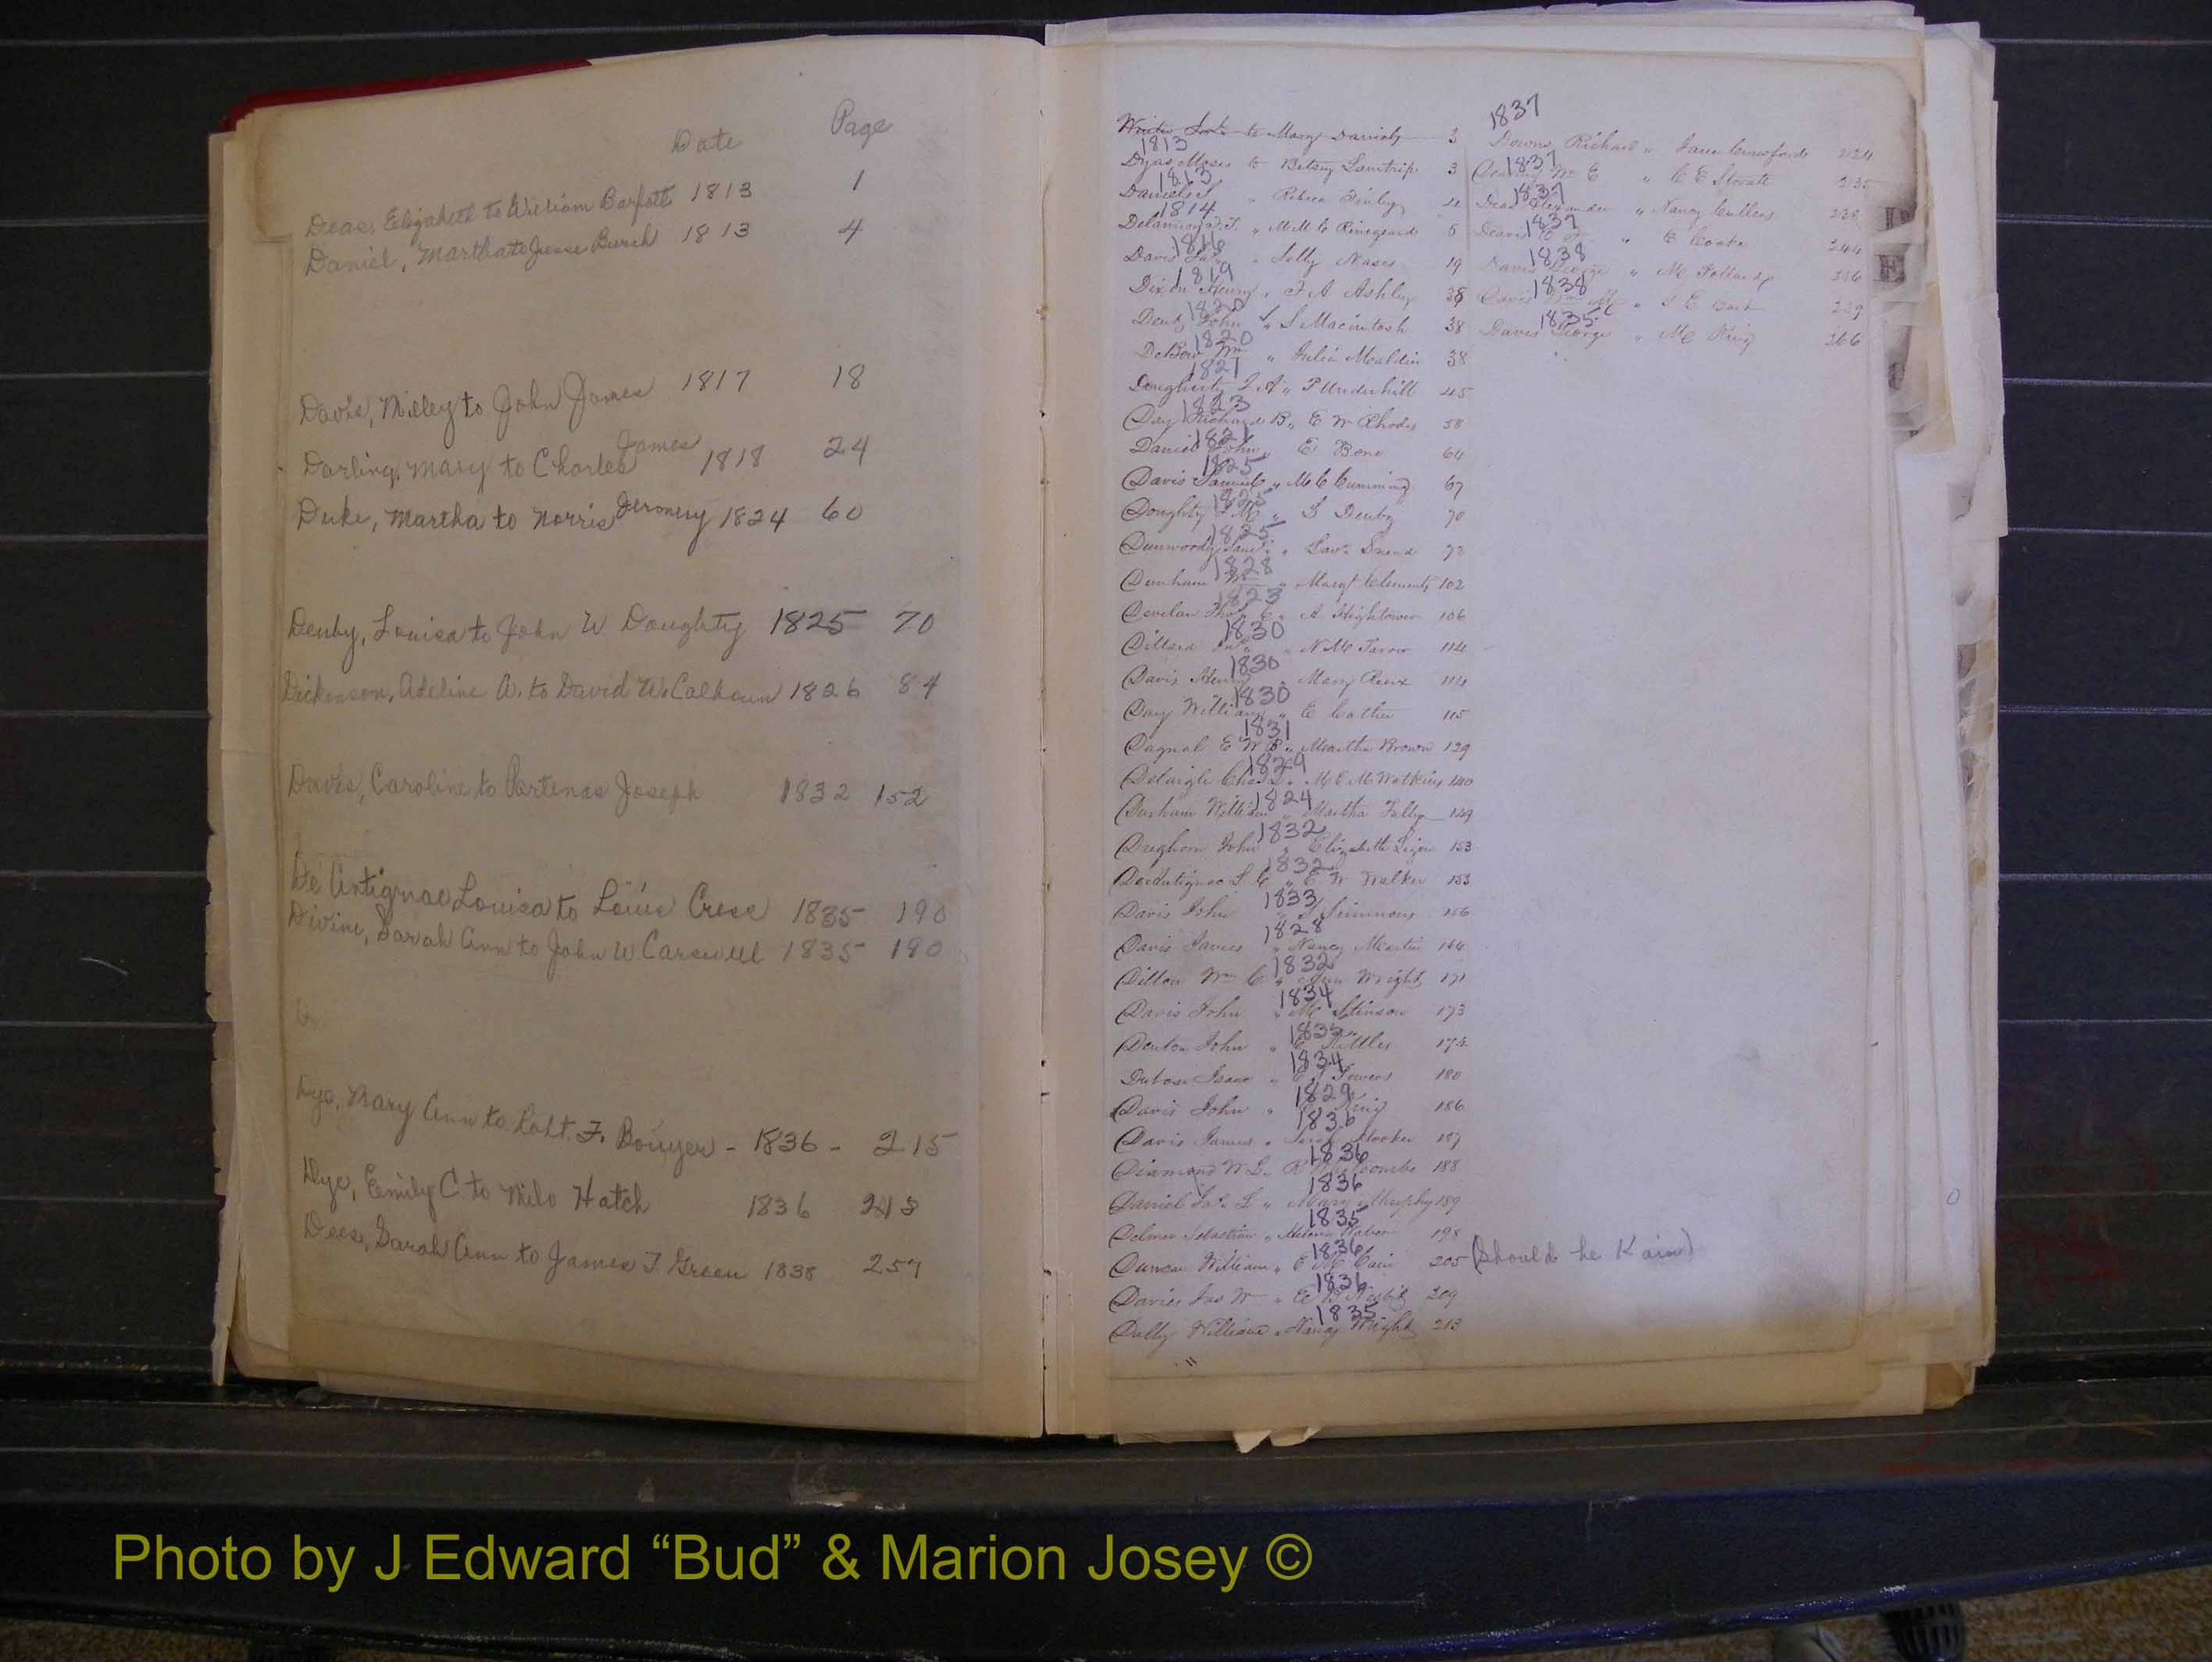 Date Page
Deas, Elizabeth to William Barfott 1813 1
Daniel, Martha to Jesse Burch 1813 4
Davis, Milley to John James 1817 18
Darling, Mary to Charles James 1818 24
Duke, Martha to Norris Jeromey 1824 60
Denby, Louisa to John W. Doughty 1825 70
Dickenson, Adeline A. to David W. Calhoun 1826 84
Davis, Caroline to Partenas Joseph 1832 152
De Antignac Louisa to Louis Cress 1835 190
Divine, Sarah Ann to John W Carswell 1835 190
Dye, Mary Ann to Robt. F. Bouyer - 1836 - 215
Dye, Emily C to Milo Hatch 1836 213
Dees, Sarah Ann to James T. Green 1838 257
to Mary Daniels 3
1813
Dyas Moses to Betsey Lantrip 3
1813
Daniels " Rebeca Finley 4
1814
" 6
1816
Davis " Nases 19
1819
Dixon Henry " F A Ashley 38
1820
John " S Macintosh 38
1820
DeBow Wm " Julia Mauldin 38
1821
Dougherty " P Underhill 45
1823
Day Richard B " E W Rhodes 58
1821
Daniel John " E Bone 64
1825
Davis Samuel " M C Cumming 67
1825
Doughty J W " L Denby 70
1825
Dunwoody " 72
1828
Dunham Wm " Margt Clements 102
1823
" A Hightower 106
1830
Dillard " 114
1830
Davis Henry " Mary 114
1830
Day William " E Cather 115
1831
Dagnal E W B " Martha Brown 129
1829
Delaigle Chas " M E M Watkins 140
1824
Durham William " Martha 149
1832
Dreghorn John " Elizabeth Ligon 153
1832
" E W Walker 153
1833
Davis John " Simmons 156
1828
Davis James " Nancy Martin 164
1832
Dillon Wm C " Ann Wright 171
1834
Davis John " M Stinson 173
1835
Denton John " E Kittles 174
1834
Dubose Isaac " Towers 180
1829
Davis John " King 186
1836
Davis James " Sarah Hooker 187
1836
Diamond W L " 188
1836
Daniel Jas L " Mary Murphy 189
1835
Delmar Sebastian " 198
1836
Duncan William " E M Cain 205 (Should be Kain)
1836
Davies Jno W " E B Nesbit 209
1835
Dally William " Nancy Wright 213
1837
Downs, Richard " Jane Crawford 224
1837
Wm E " C E Stovall 235
1837
Deas Alexander " Nancy Cullens 238
1837
" E Cooke 244
1838
Davis George " M Pollard
1838
" 259
1835
Davis George " M King 266
Photo by J Edward “Bud” & Marion Josey ©